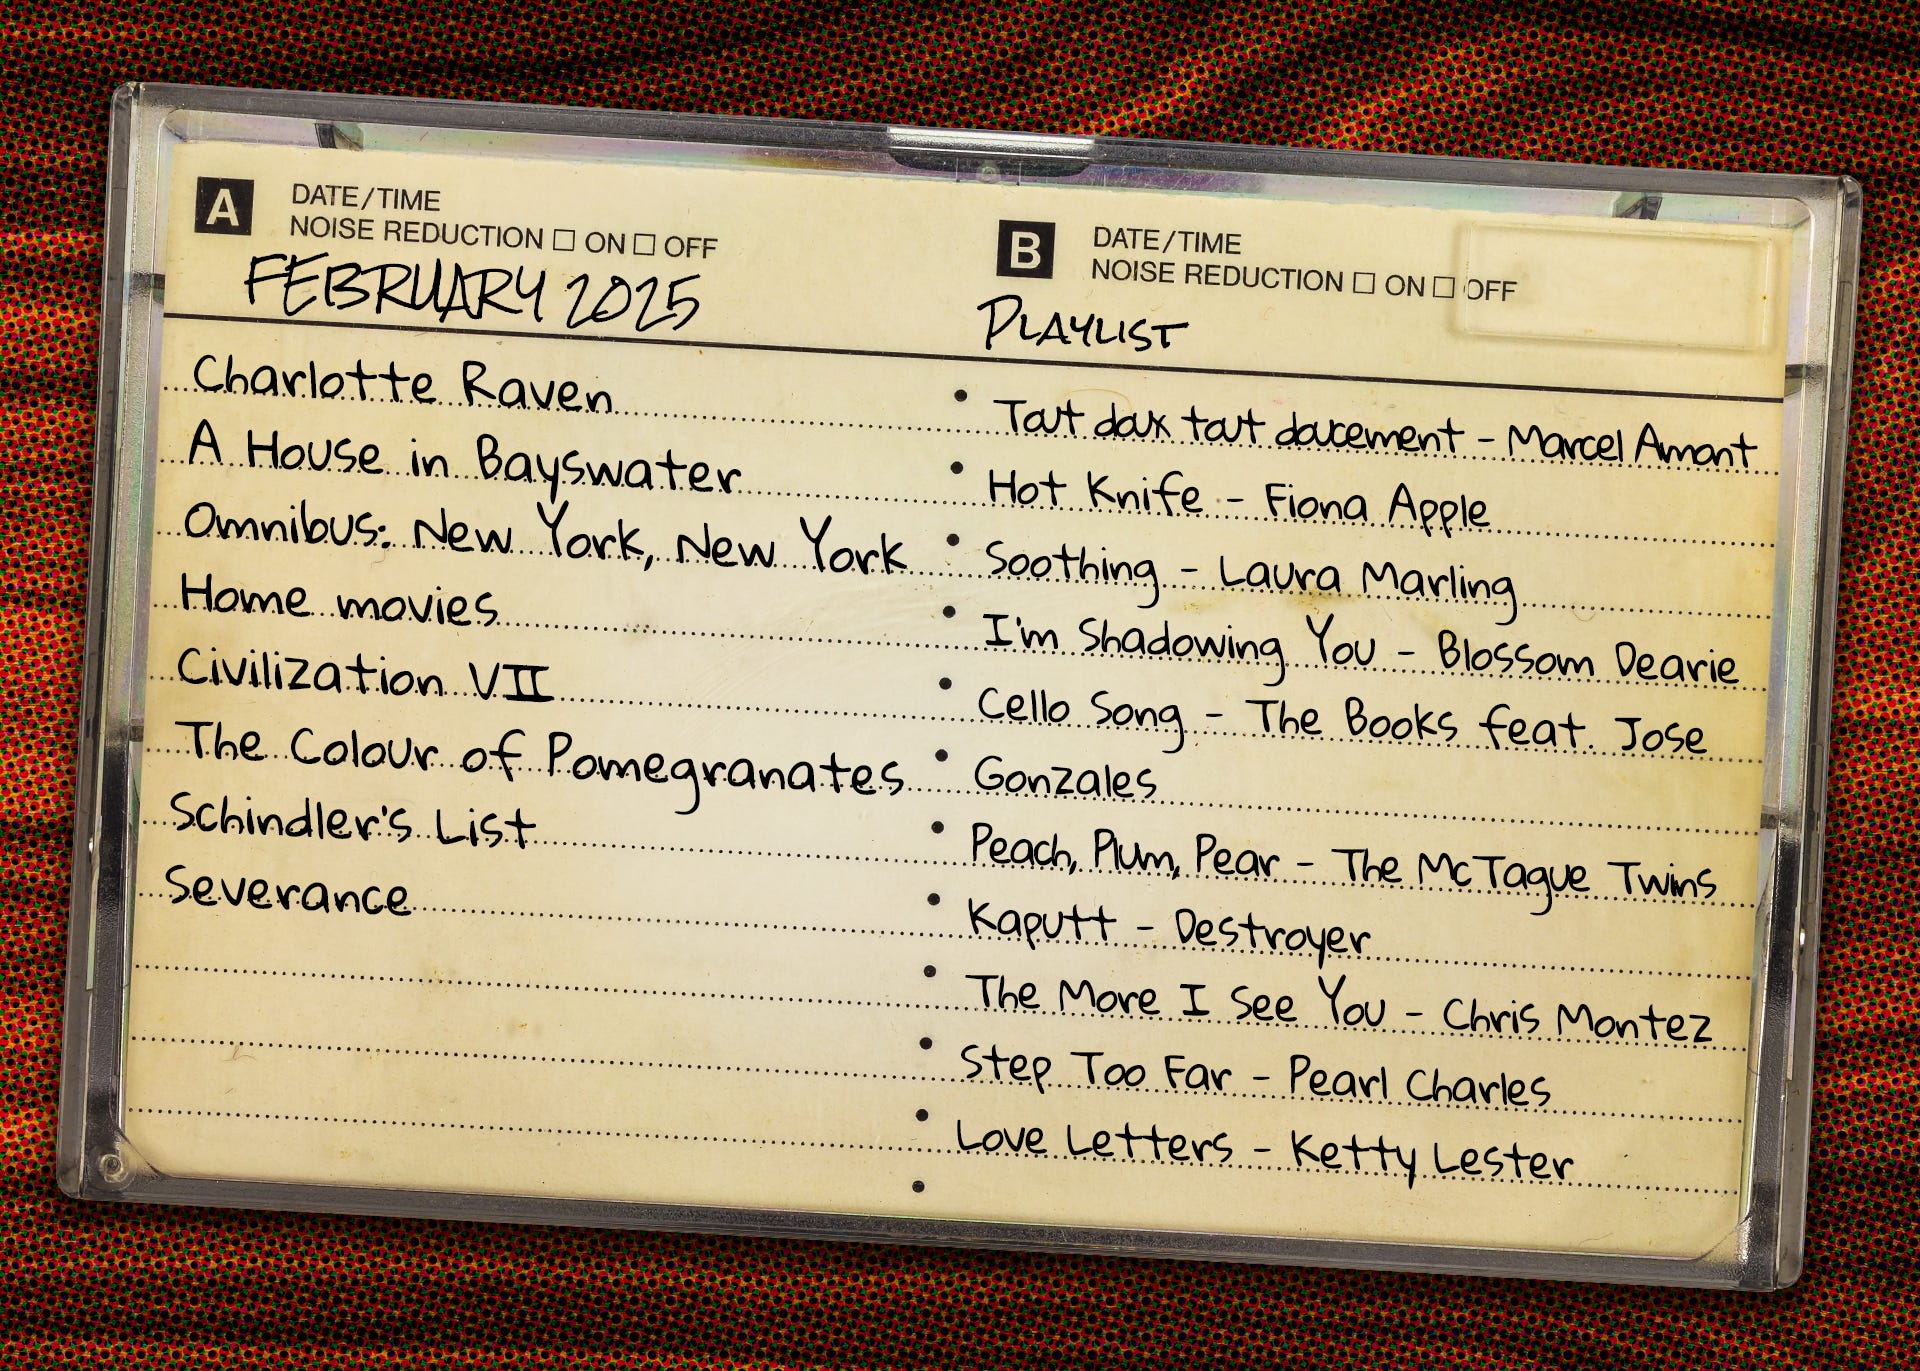 A
DATE/TIME
NOISE REDUCTION □ ON □ OFF
FEBRUARY 2025
Charlotte Raven
A House in Bayswater
Omnibus: New York, New York
Home movies
Civilization VII
The Colour of Pomegranates
Schindler's List
Severance
B
DATE/TIME
NOISE REDUCTION □ ON □ OFF
PLAYLIST
Tout doux tout doucement - Marcel Amont
Hot Knife - Fiona Apple
Soothing - Laura Marling
I'm Shadowing You - Blossom Dearie
Cello Song - The Books feat. Jose
Gonzales
Peach, Plum, Pear - The McTague Twins
Kaputt - Destroyer
The More I See You - Chris Montez
Step Too Far - Pearl Charles
Love Letters - Ketty Lester